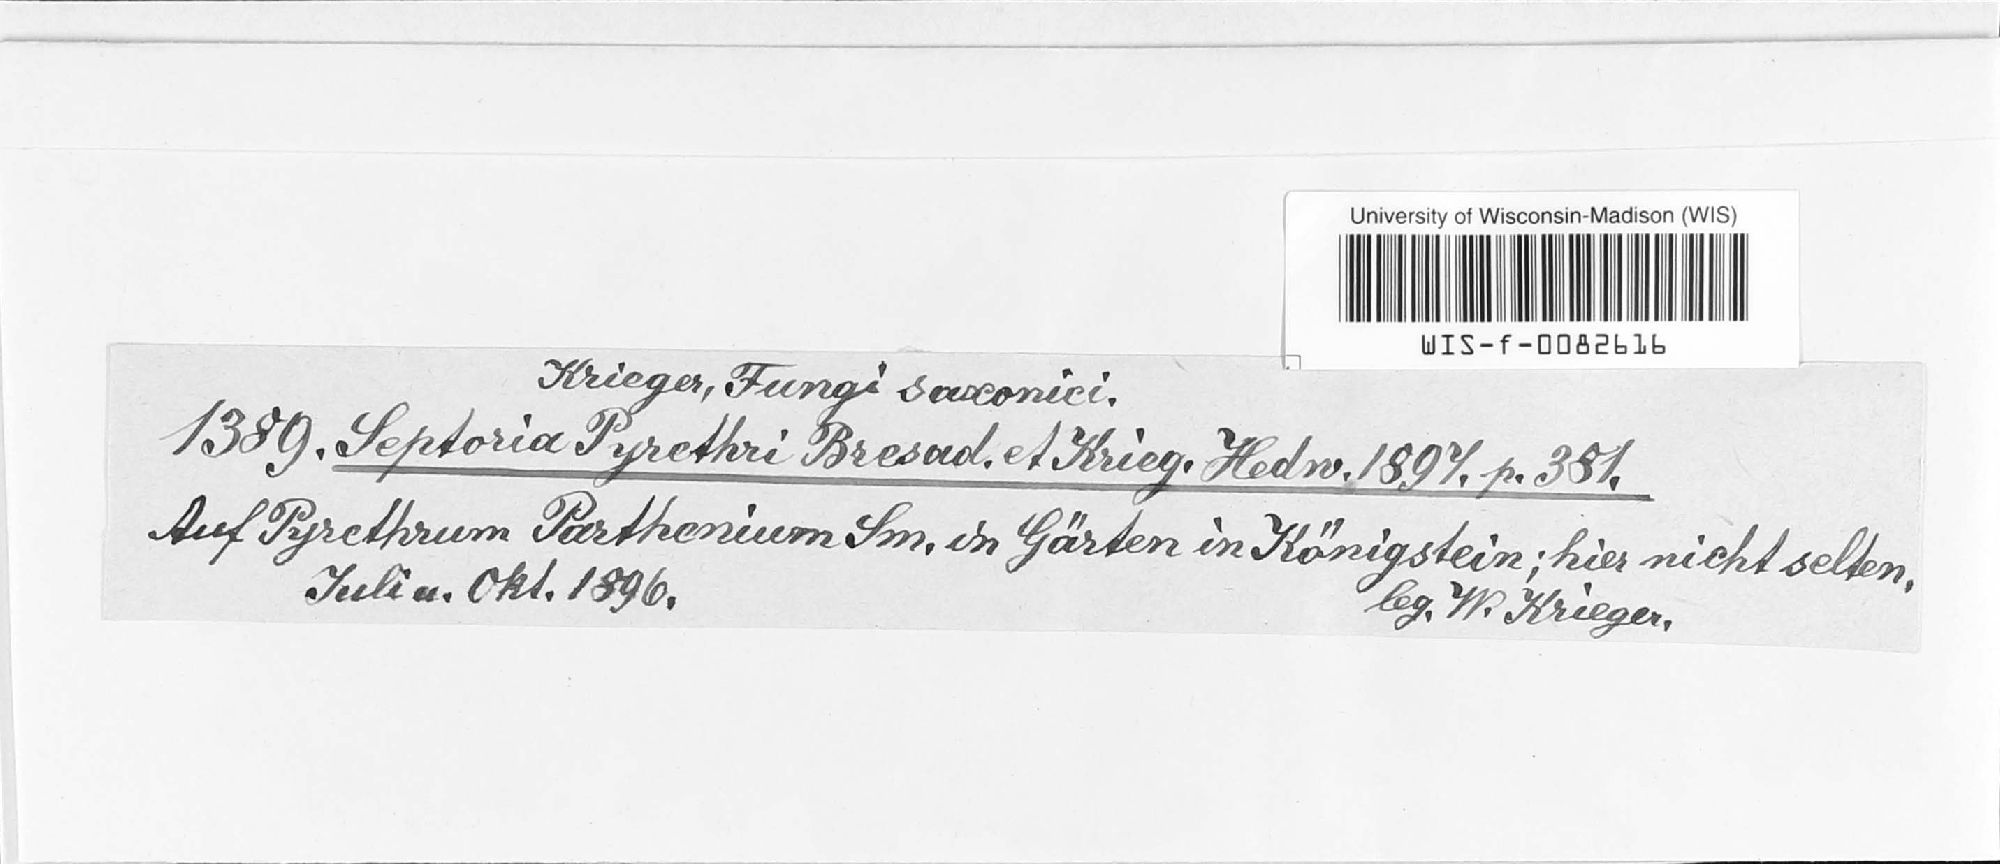 University of Wisconsin-Madison (WIS)
WIS-f-0082616
Krieger, Fungi saxonici.
1389. Septoria Pyrethri Bresad. et Krieg. Hedw. 1897. p. 381.
Auf Pyrethrum Parthenium Sm. in Gärten in Königstein; hier nicht selten.
Juli u. Okt. 1896.
leg. W. Krieger.